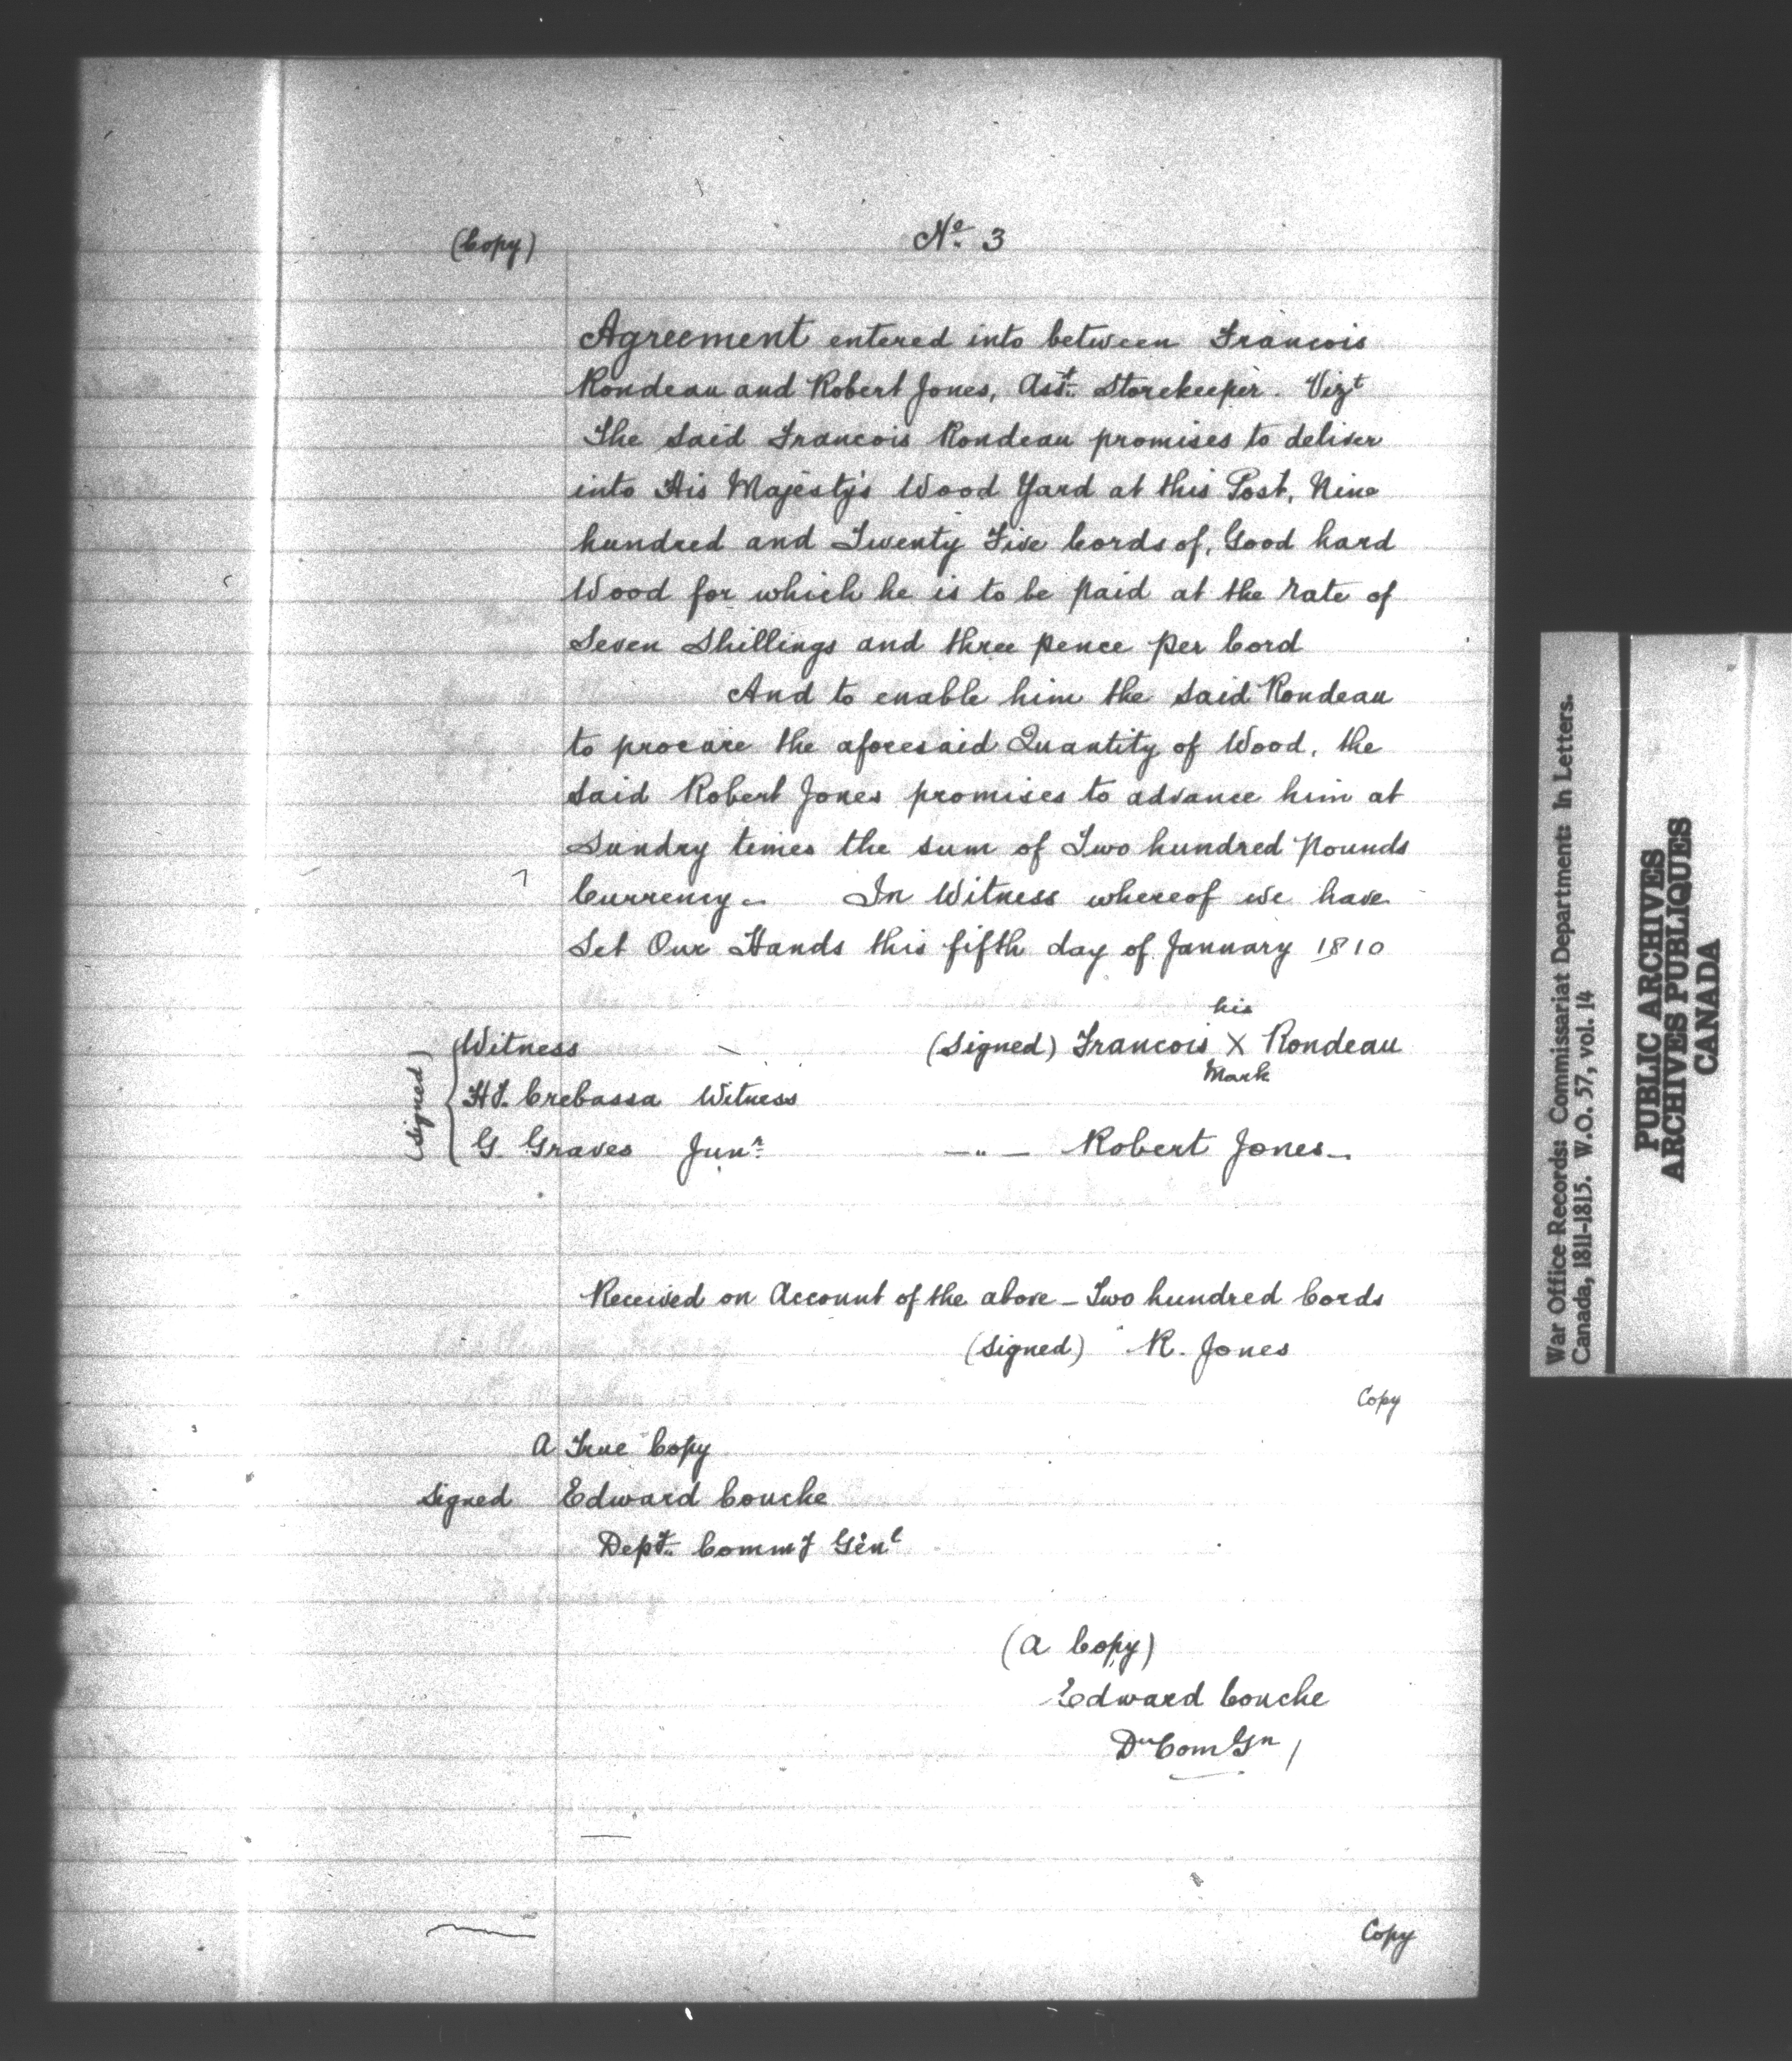 (Copy)
No. 3
Agreement entered into between Francois
Rondeau and Robert Jones, Asst. Storekeeper. Vizt
The said Francois Rondeau promises to deliver
into His Majesty's Wood Yard at this Post, Nine
hundred and Twenty Five Cords of, Good hard
Wood for which he is to be paid at the rate of
Seven Shillings and three pence per Cord
And to enable him the said Rondeau
to procure the aforesaid Quantity of Wood, the
said Robert Jones promises to advance him at
Sundry times the sum of Two hundred Pounds
Currency. In Witness whereof we have
Set Our Hands this fifth day of January 1810
his
(Signed) Francois X Rondeau
Mark
(signed)
Witness
H.J. Crebassa Witness
G. Graves Junr.
—"— Robert Jones—
Received on Account of the above — Two hundred Cords
(signed) R. Jones
Copy
A True Copy
signed Edward Couche
Dept. Commy Genl
(A Copy)
Edward Couche
Copy
War Office Records: Commissariat Department: In Letters.
Canada, 1811-1815. W.O. 57, vol. 14
PUBLIC ARCHIVES
ARCHIVES PUBLIQUES
CANADA